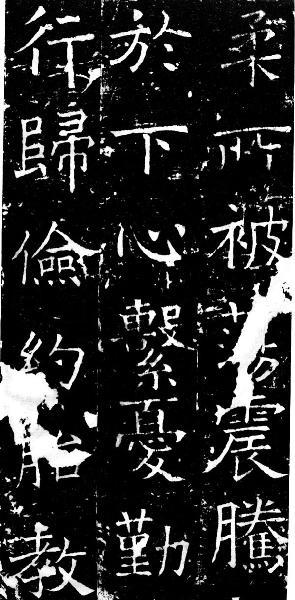 柔所被芳震騰
於下心繫憂勤
行歸儉約胎教